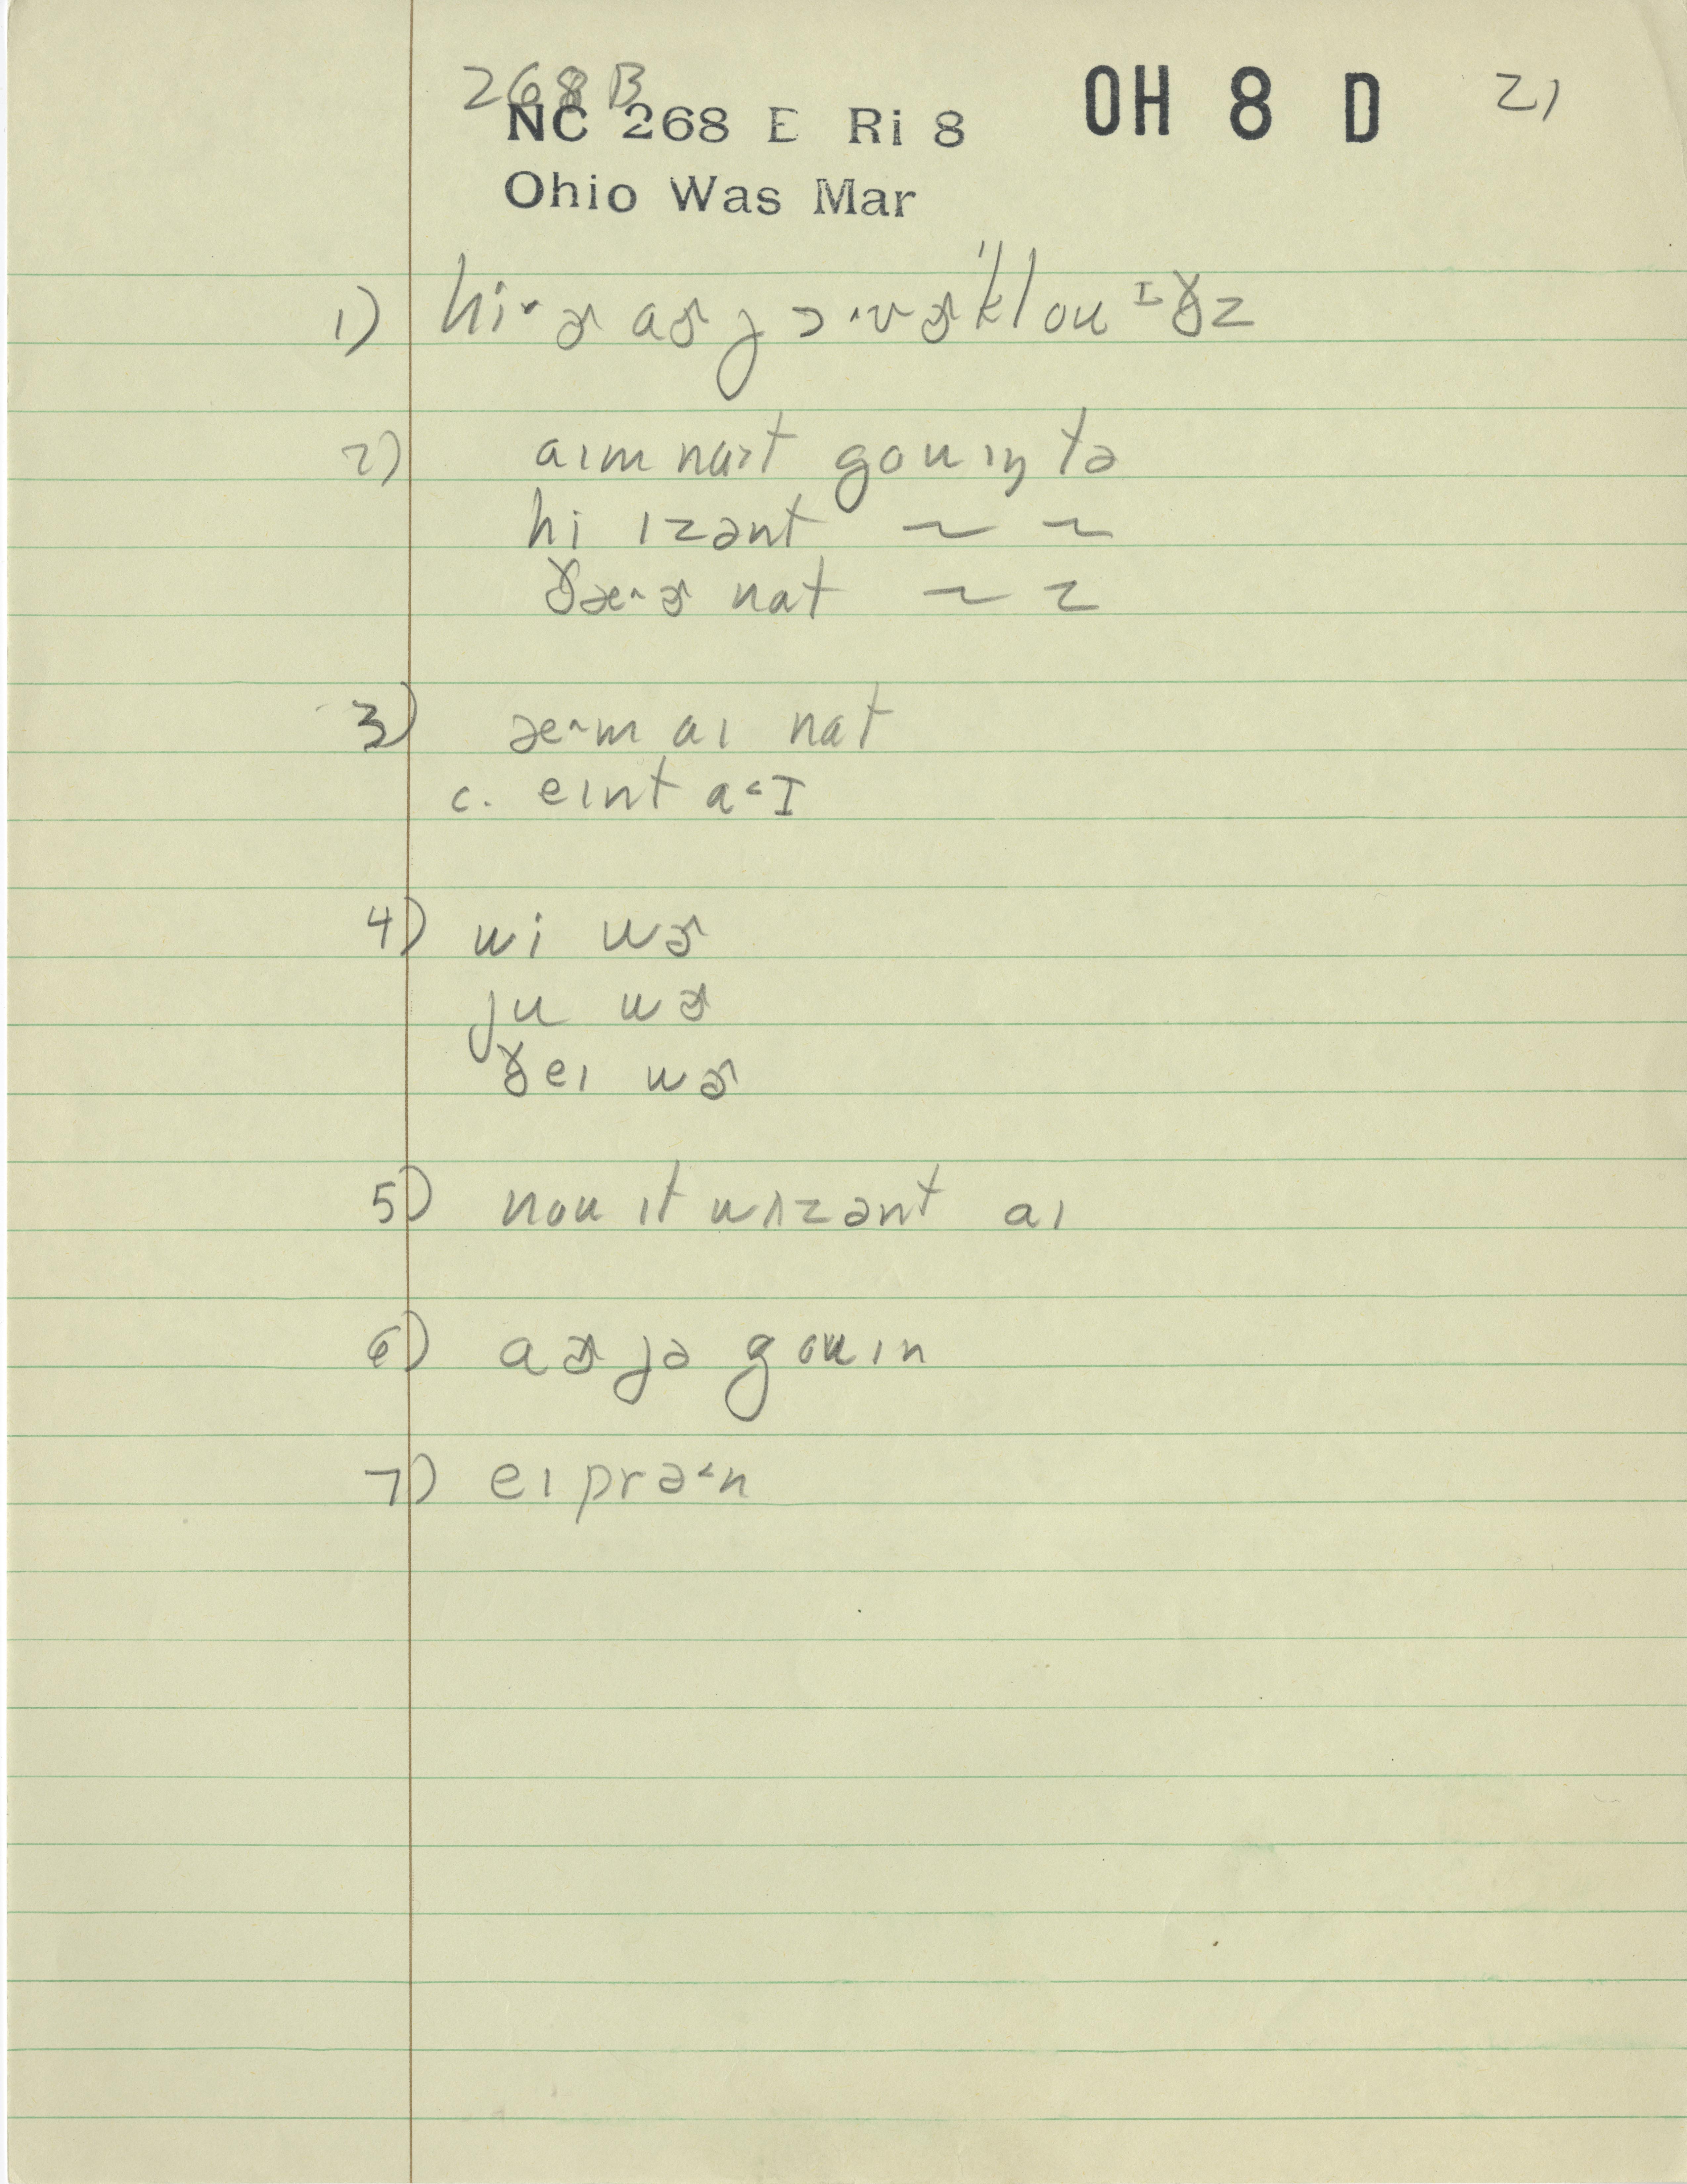 268B
NC 268 E Ri 8 OH 8 D 21
Ohio Was Mar
1) hi˞ɚ aɚ jɔ˞vɚ ˈklouᴵðz
2) aɪm nɑ˞t gouɪŋ tə
hi ɪzənt ~ ~
ðæ˞ɚ nat ~ ~
3) æ˞m aɪ nat
c. eɪnt a˂ɪ
4) wi wɚ
ju wɚ
ðeɪ wɚ
5) nou ɪt wʌzənt aɪ
6) aɚ jə gouɪn
7) eɪprə˂n